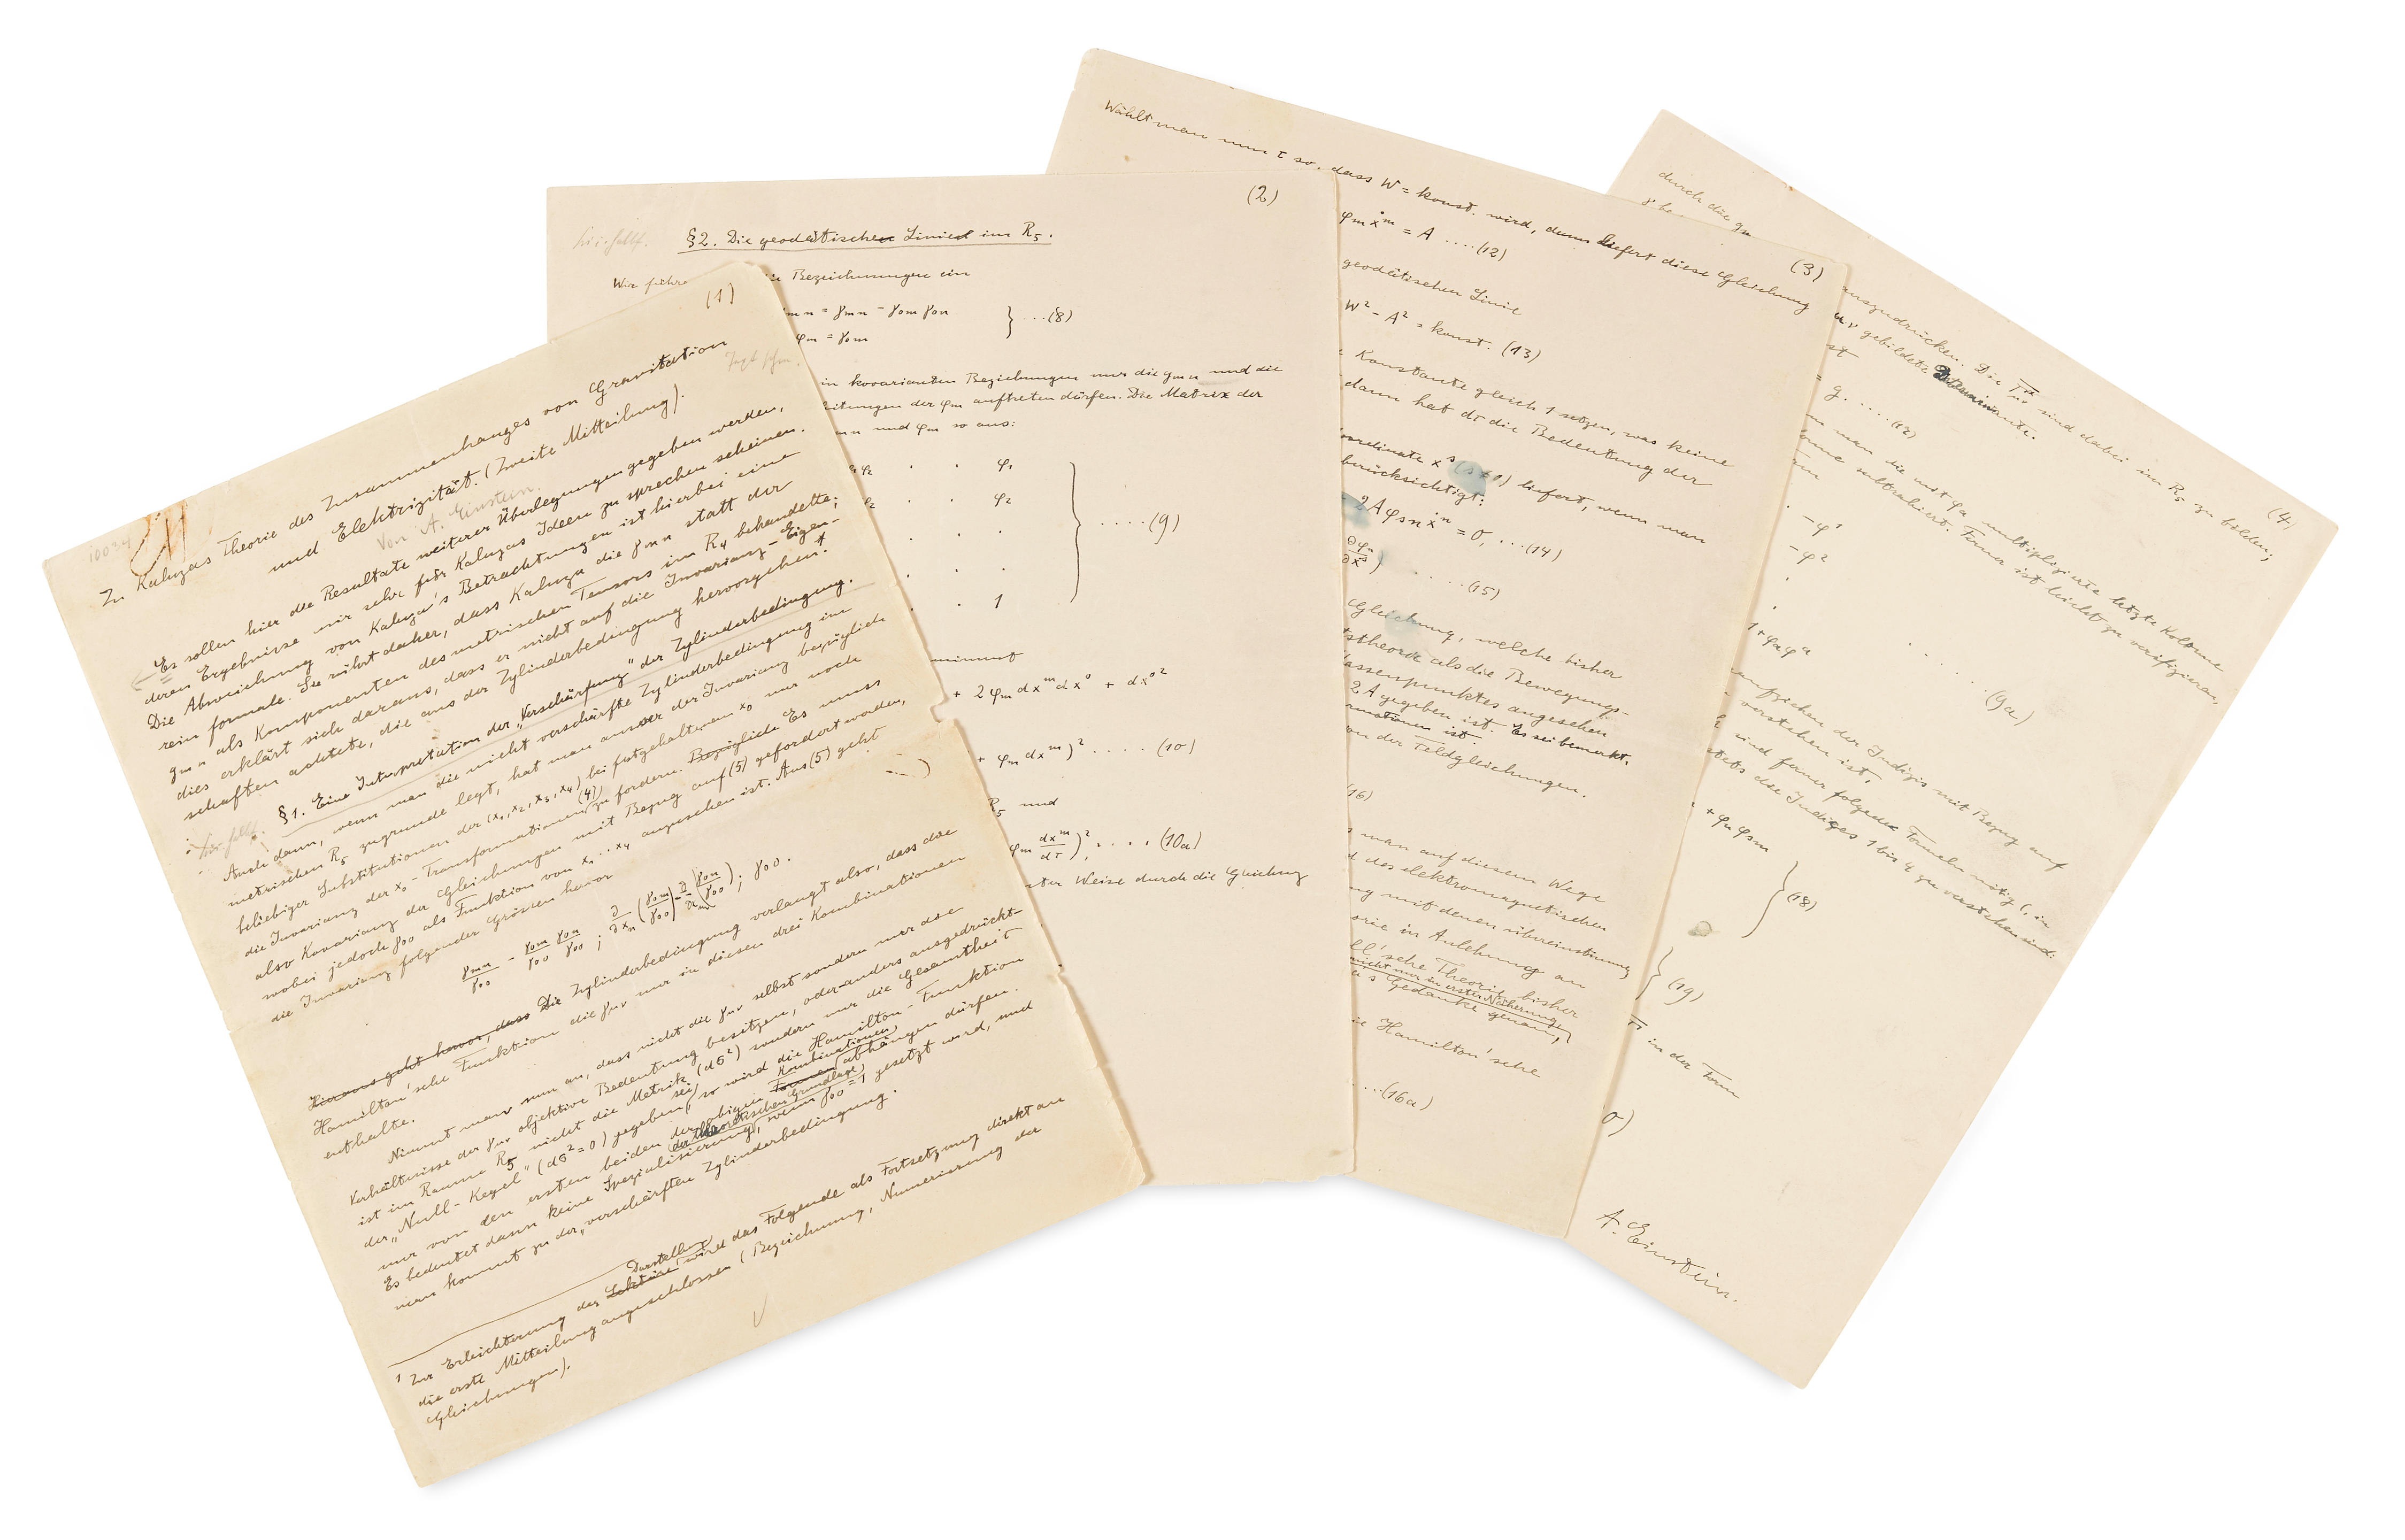 (1)
Zu Kaluzas Theorie des Zusammenhanges von Gravitation
und Elektrizität. (Zweite Mitteilung).
Von A. Einstein.
Es sollen hier die Resultate weiterer Überlegungen gegeben werden,
deren Ergebnisse mir sehr für Kaluzas Ideen zu sprechen scheinen.
Die Abweichung von Kaluza's Betrachtungen ist hierbei eine
rein formale. Sie rührt daher, dass Kaluza die γmn statt der
gmn als Komponenten des metrischen Tensors im R4 behandelte;
dies erklärt sich daraus, dass er nicht auf die Invarianz-Eigen-
schaften achtete, die aus der Zylinderbedingung hervorgehen.
§1. Eine Interpretation der „Verschärfung" der Zylinderbedingung.
Auch dann, wenn man die nicht verschärfte Zylinderbedingung im
metrischen R5 zugrunde legt, hat man ausser der Invarianz bezüglich
beliebiger Substitutionen der (x1, x2, x3, x4) bei festgehaltenem x0 nur noch
die Invarianz der x0-Transformationen (4) zu fordern. Bezüglich Es muss
also Kovarianz der Gleichungen mit Bezug auf (5) gefordert werden,
wobei jedoch γ00 als Funktion von x1...x4 angesehen ist. Aus (5) geht
die Invarianz folgender Grössen hervor
γmn/γ00 − γ0m/γ00 γ0n/γ00 ; ∂/∂xn (γ0m/γ00) − ∂/∂xm (γ0n/γ00) ; γ00.
Hieraus geht hervor, dass Die Zylinderbedingung verlangt also, dass die
Hamilton'sche Funktion die γμν nur in diesen drei Kombinationen
enthalte.
Nimmt man nun an, dass nicht die γμν selbst sondern nur die
Verhältnisse der γμν objektive Bedeutung besitzen, oder anders ausgedrückt
ist im Raume R5 nicht die Metrik (dσ²) sondern nur die Gesamtheit
der „Null-Kegel" (dσ²=0) gegeben, so wird die Hamilton-Funktion
nur von den ersten beiden der obigen Formen Kombinationen abhängen dürfen.
Es bedeutet dann keine Spezialisierung der theoretischen Grundlage, wenn γ00=1 gesetzt wird, und
man kommt zu der „verschärften Zylinderbedingung.
¹ Zur Erleichterung der Darstellung wird das Folgende als Fortsetzung direkt an
die erste Mitteilung angeschlossen (Bezeichnung, Numerierung der
Gleichungen).
(2)
§2. Die geodätischen Linien im R5.
Wir führe Bezeichnungen ein
mn = γmn − γ0m γ0n
φm = γ0m
} ...(8)
in kovarianten Beziehungen nur die gmn und die
itungen der φm auftreten dürfen. Die Matrix der
mn und φm so aus:
φ1
φ2
1
} ....(9)
nimmt
+ 2 φm dx^m dx^0 + dx^0²
+ φm dx^m)² .... (10)
R5 und
φm dx^m/dτ)², .... (10a)
ter Weise durch die Gleichung
(3)
Wählt man nun τ so, dass W = konst. wird, dann liefert diese Gleichung
φm ẋ^m = A ....(12)
geodätischen Linie
W² − A² = konst. (13)
Konstante gleich 1 setzen, was keine
dann hat dτ die Bedeutung der
oordinate x^s (s≠0) liefert, wenn man
berücksichtigt:
2Aφsn ẋ^n = 0, ...(14)
∂φn/∂x^s) .....(15)
Gleichung, welche bisher
tstheorie als die Bewegungs-
assenpunktes angesehen
2A gegeben ist. Es sei bemerkt,
rmationen ist.
on der Feldgleichungen.
(16)
man auf diesem Wege
d des elektromagnetischen
ng mit denen übereinstimmen,
orie in Anlehnung an
ll'sche Theorie bisher
nicht nur in erster Näherung,
a's Gedanke genau,
ie Hamilton'sche
....(16a)
(4)
durch die gμ auszudrücken. Die Γ sind dabei im R5 zu bilden;
μν gebildete Determinante.
st
= g. .....(17)
man die mit φa multiplizierte letzte Kolonne
subtrahiert. Ferner ist leicht zu verifizieren,
−φ¹
−φ²
1+φaφ^a
...... (9a)
aufziehen der Indizes mit Bezug auf
verstehen ist.
sind ferner folgende Formeln nötig (, in
stets die Indizes 1 bis 4 zu verstehen sind.
+ φn φsm
} (18)
} (19)
in der Form
0)
A. Einstein.